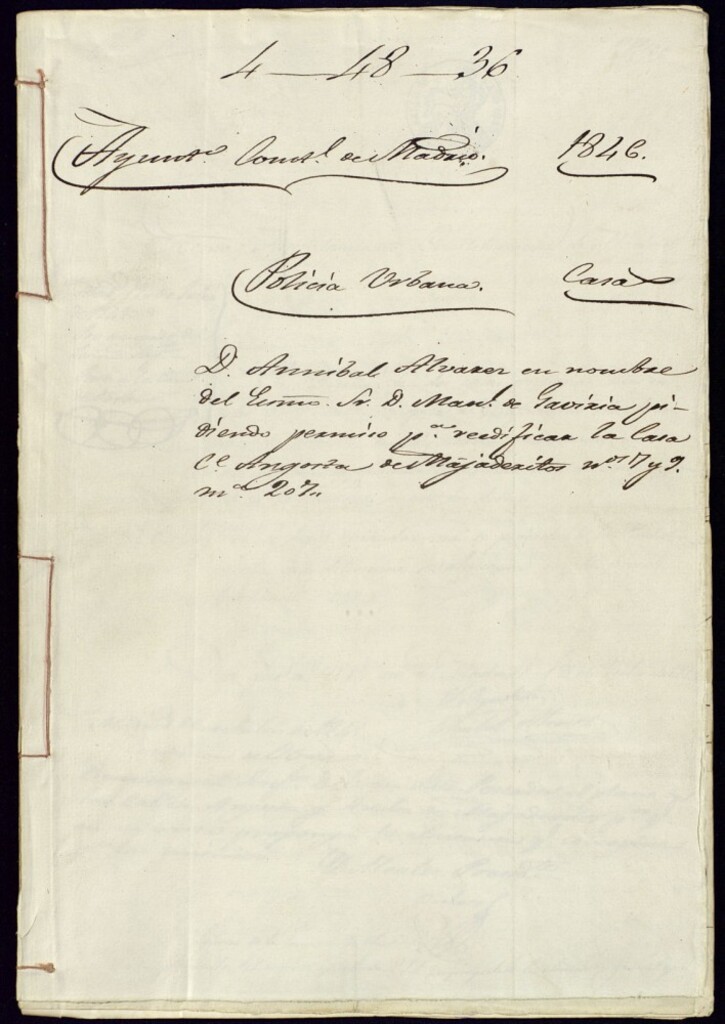 4 — 48 — 36
Ayunto. Constl. de Madrid. 1846.
Policia Urbana. Casas
D. Annibal Alvarez en nombre
del Exmo. Sr. D. Manl. de Gaviria pi-
diendo permiso pa. reedificar la Casa
Ce. Angosta de Majaderitos nos. 7 y 9.
ma. 207.,